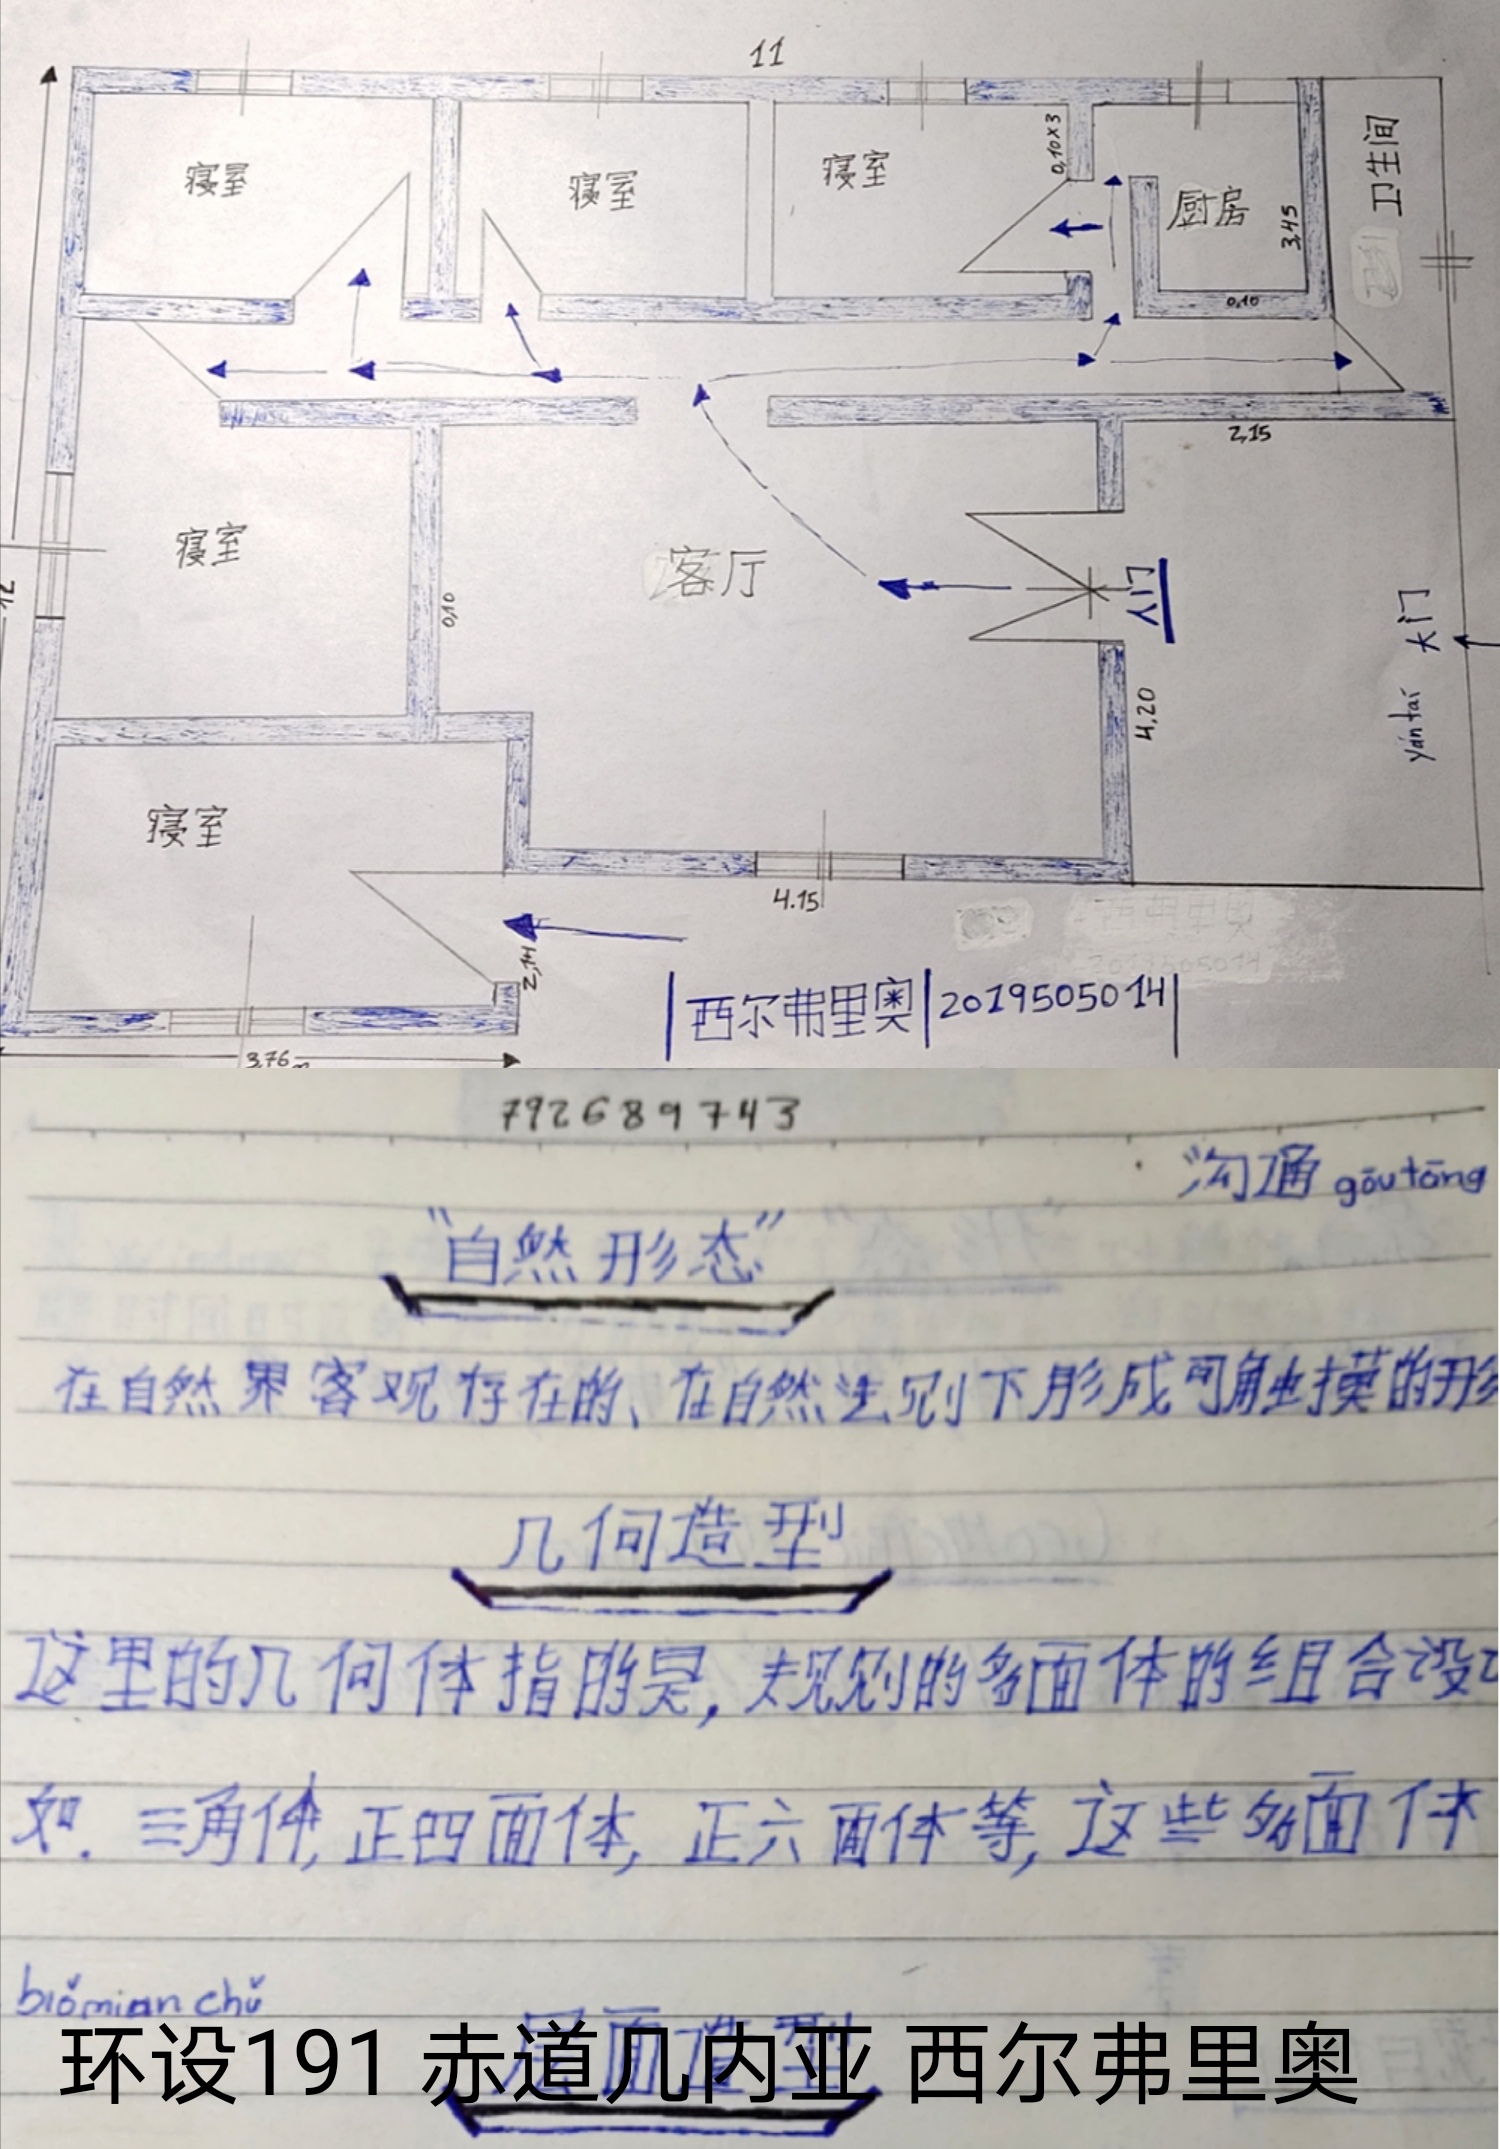 11
寝室
寝室
寝室
0,10x3
厨房
3,45
卫生间
0,10
2,15
寝室
0,10
客厅
入门
大门
yántaí
4,20
12
寝室
4.15
2,14
西尔弗里奥 2019505014
3,76m
792689743
沟通 gōutōng
"自然形态"
在自然界客观存在的、在自然法则下形成可触摸的形
几何造型
这里的几何体指的是, 规则的多面体的组合设
如. 三角体, 正四面体, 正六面体等, 这些多面体
biǒmian chǔ
层面造型
环设191 赤道几内亚 西尔弗里奥